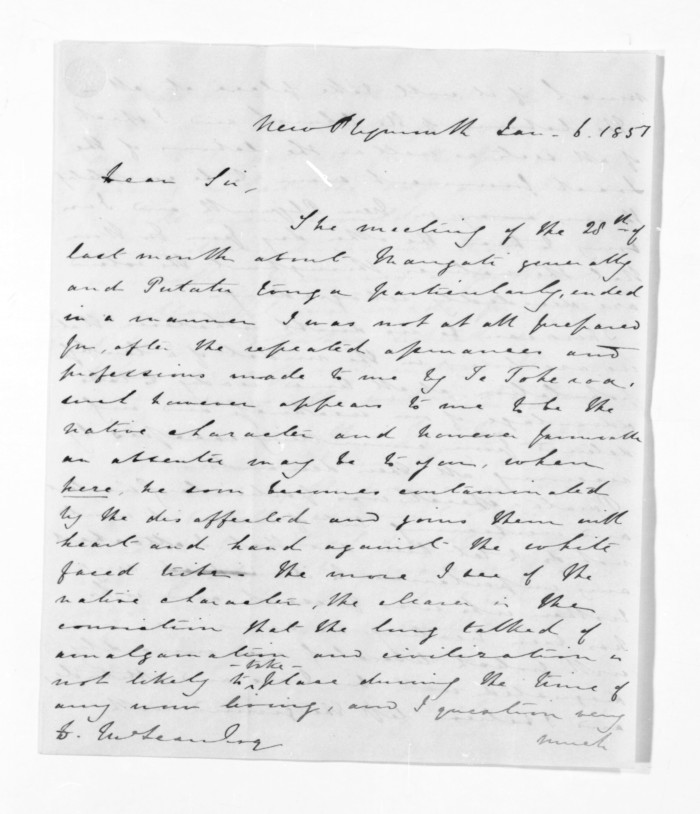 New Plymouth Jan. 6. 1851
Dear Sir,
The meeting of the 28th of
last month about Mangati generally
and Putatu Tonga particularly, ended
in a manner I was not at all prepared
for, after the repeated assurances and
professions made to me by Te Toheroa.
such however appears to me to be the
native character and however favourable
an absentee may be to you, when
here, he soon becomes contaminated
by the disaffected and joins them with
heart and hand against the white
faced tribe. the more I see of the
native character, the clearer is the
conviction that the long talked of
amalgamation and civilization is
not likely to take place during the time of
any now living, and I question very
D. McLean Esq much